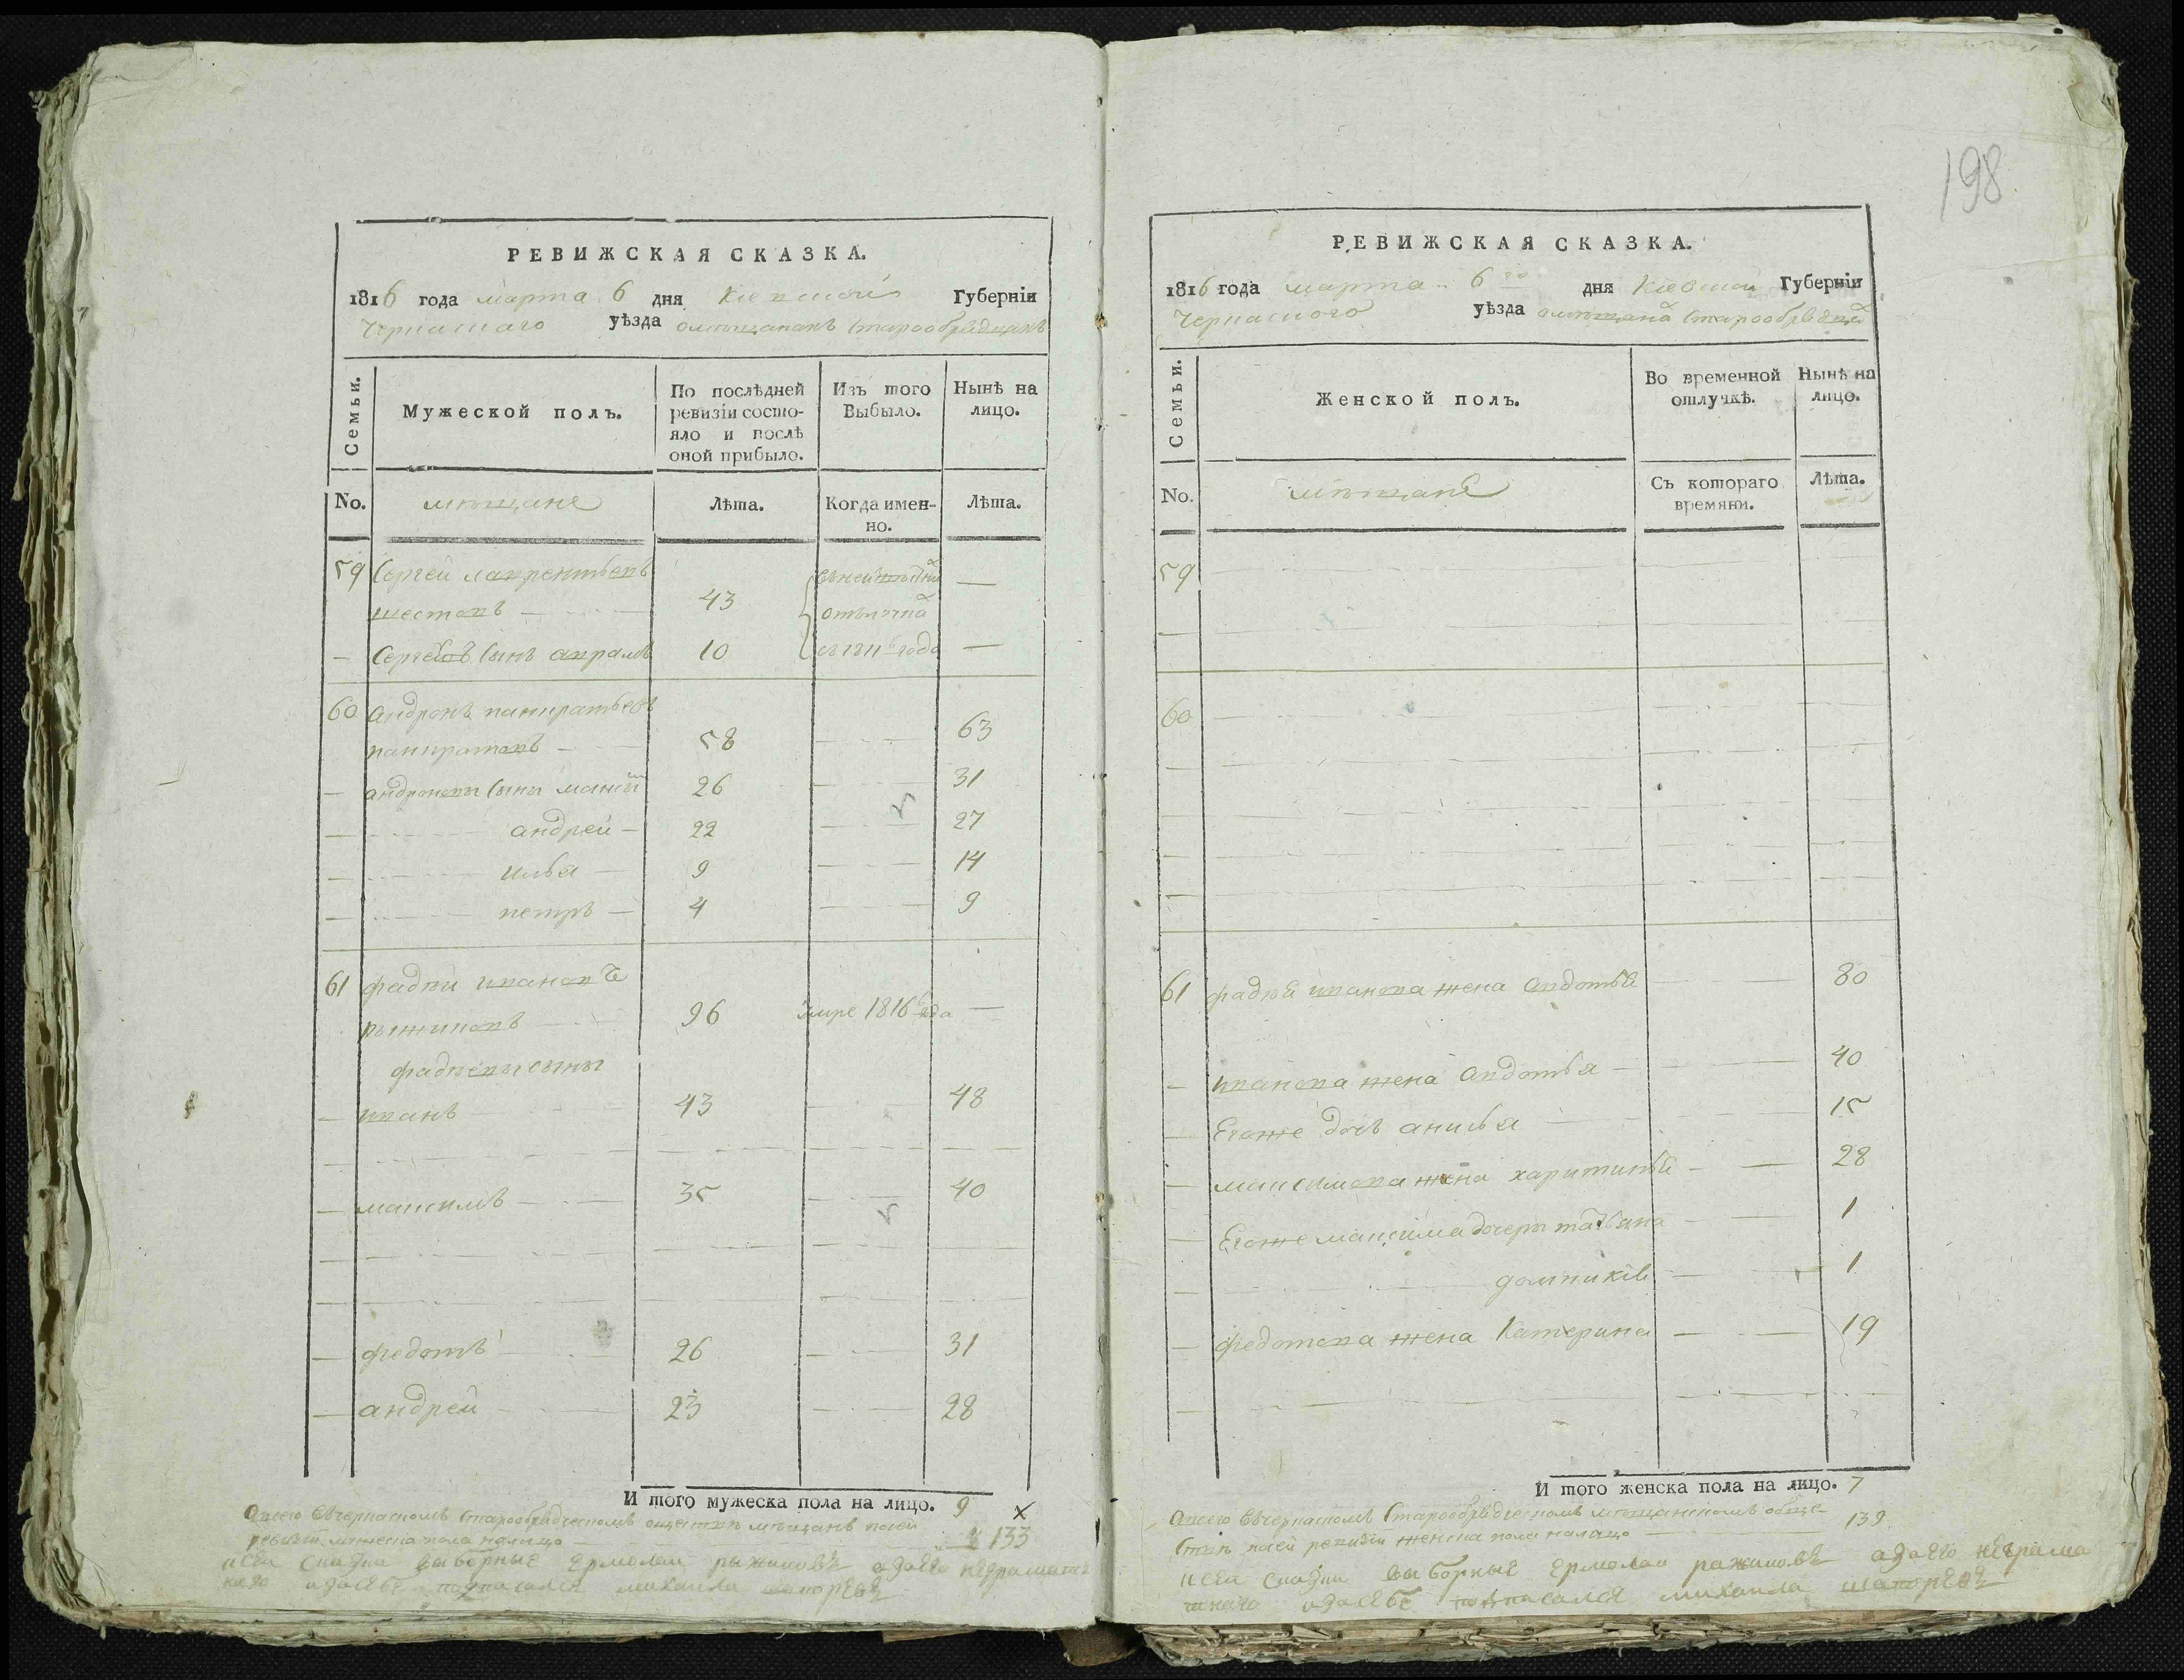 РЕВИЖСКАЯ СКАЗКА.
1816 года марта 6 дня Киевской Губерніи
Черкаскаго уѣзда омѣщанахъ Старообрядцахъ
Семьи.
Мужеской полъ.
По послѣдней ревизіи состояло и послѣ оной прибыло.
Изъ того Выбыло.
Нынѣ на лицо.
No. мѣщане Лѣта. Когда именно. Лѣта.
59 Сергей лаврентьевъ
шестовъ 43 —
отлучке
— Сергеевъ Сынъ авраамъ 10 съ 1811 года —
60 Андронъ панкратьевъ
панкратовъ 58 63
— андроновы Сыны 26 31
андрей 22 27
илья 9 14
петръ 4 9
61 фадѣи ивановъ
рыжиковъ 96 Умре 1816 года —
фадѣевы сыны
— иванъ 43 48
— максимъ 35 40
— федотъ 26 31
— андрей 23 28
И того мужеска пола на лицо. 9
Авсего въчеркаскомъ Старообрядческомъ мѣщанъ посей
ревизіи мужеска пола налицо 133
ксей Скаски выборные Ермолаи рыжиковъ азаего неграмотъ
наго изасебе подписался михаила
198
РЕВИЖСКАЯ СКАЗКА.
1816 года марта 6го дня Киевской Губерніи
Черкаского уѣзда омѣщанахъ Старообрядцахъ
Семьи.
Женской полъ.
Во временной отлучкѣ.
Нынѣ на лицо.
No. мѣщане Съ котораго времяни. Лѣта.
59
60
61 фадѣя иванова жена авдотья 80
— иванова жена авдотья 40
— Егоже дочь анисья 15
— максимова жена харитинья 28
— Егоже максима дочери татьяна 1
1
— федотова жена Катерина 19
И того женска пола на лицо. 7
Авсего въчеркаскомъ Старообрядческомъ мѣщанскомъ обще-
ствѣ посей ревизіи женска пола налицо 139
ксей Скаски выборные Ермолаи рыжиковъ азаего неграмо
тнаго изасебе подписался михаила